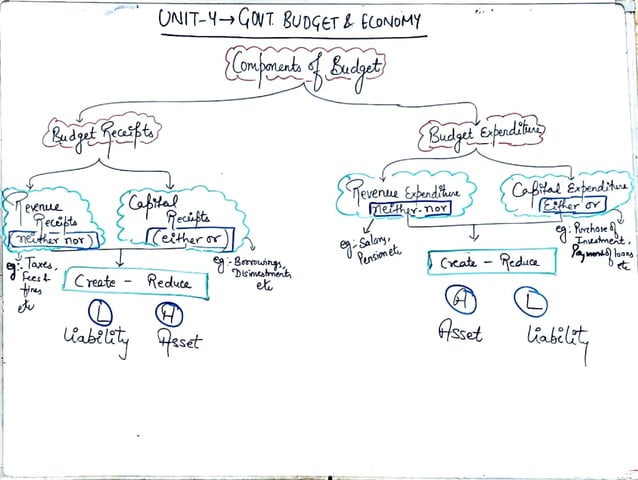 UNIT-4→GOVT. BUDGET & ECONOMY
Components of Budget
Budget Receipts
Budget Expenditure
Revenue
Receipts
(neither nor)
Capital
Receipts
(either or)
Revenue Expenditure
neither-nor
Capital Expenditure
Either or
eg:- Taxes,
Fees &
fines
etc
eg:- Borrowings,
Disinvestments
etc
eg:- Salary,
Pension etc
eg:- Purchase of
Investment,
Payment of loans
etc
Create - Reduce
Create - Reduce
L
A
A
L
Liability
Asset
Asset
Liability